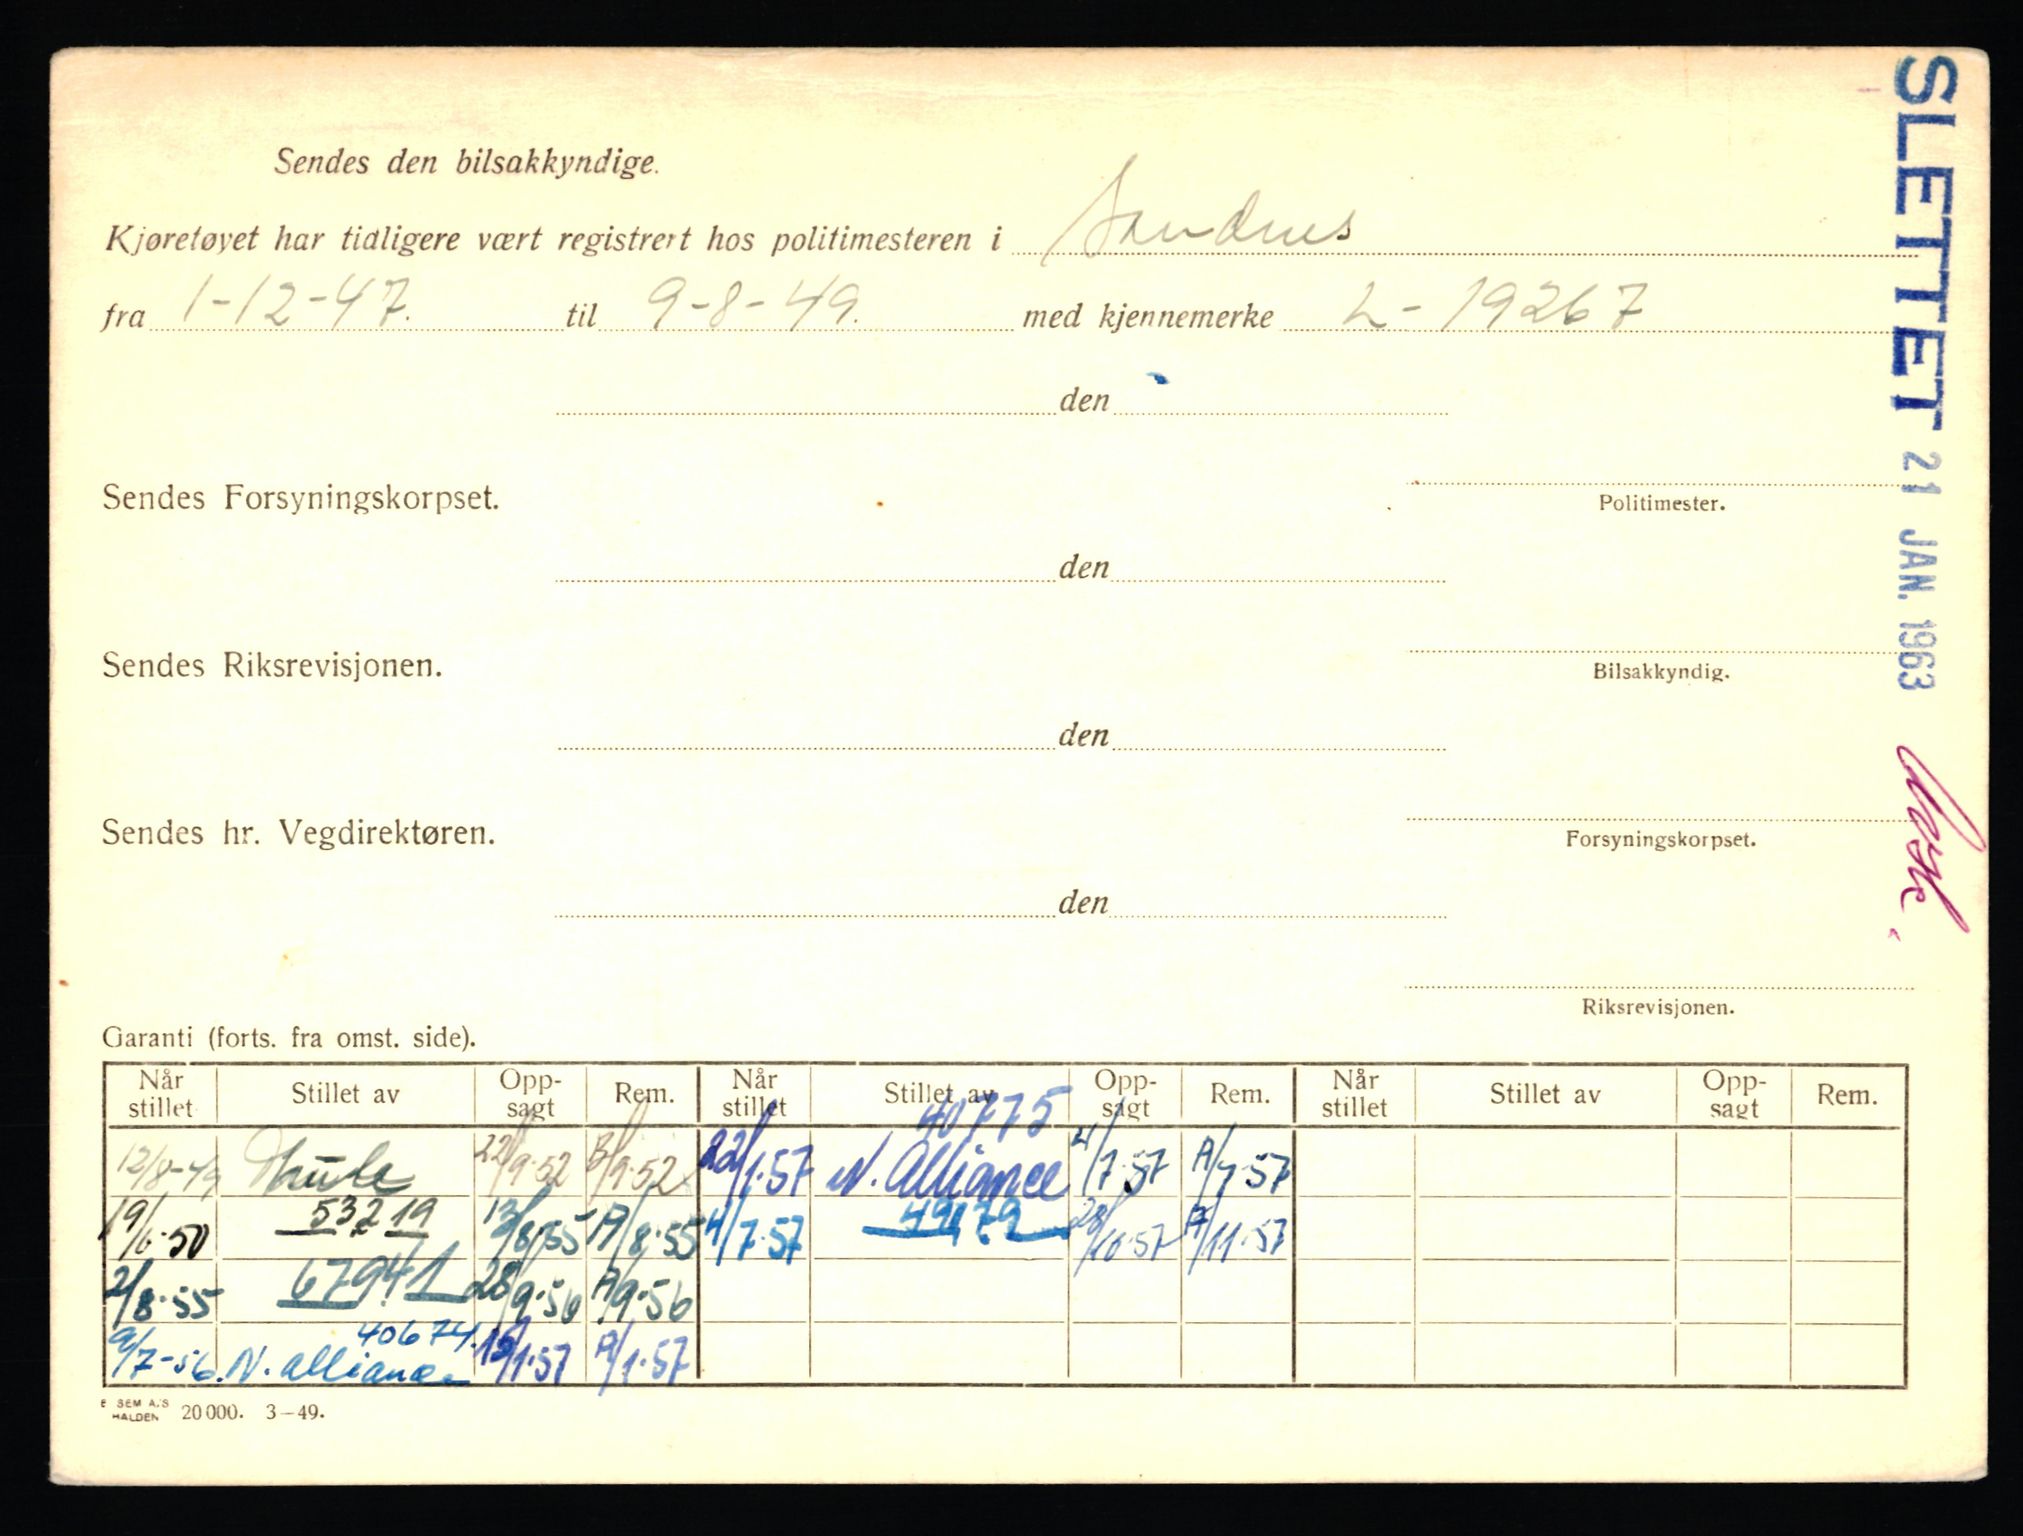 Sendes den bilsakkyndige.
Kjøretøyet har tidligere vært registrert hos politimesteren i Sandnes
fra 1-12-47. til 9-8-49. med kjennemerke L-19267
den
Sendes Forsyningskorpset.
Politimester.
den
Sendes Riksrevisjonen.
Bilsakkyndig.
den
Sendes hr. Vegdirektøren.
Forsyningskorpset.
den
Riksrevisjonen.
SLETTET 21 JAN. 1963
Garanti (forts. fra omst. side).
Når stillet Stillet av Opp-sagt Rem. Når stillet Stillet av Opp-sagt Rem. Når stillet Stillet av Opp-sagt Rem.
40775
12/8-49 Thule 22/9-52 /9-52 22/1-57 N. Alliance 4/7-57 A/7-57
19/6-50 53219 13/8-55 A/8-55 4/7-57 28/10-57 A/11-57
2/8-55 67941 28/9-56 A/9-56
40674
9/7-56. N. Alliance 15/1-57 A/1-57
E SEM A/S
HALDEN 20 000. 3-49.